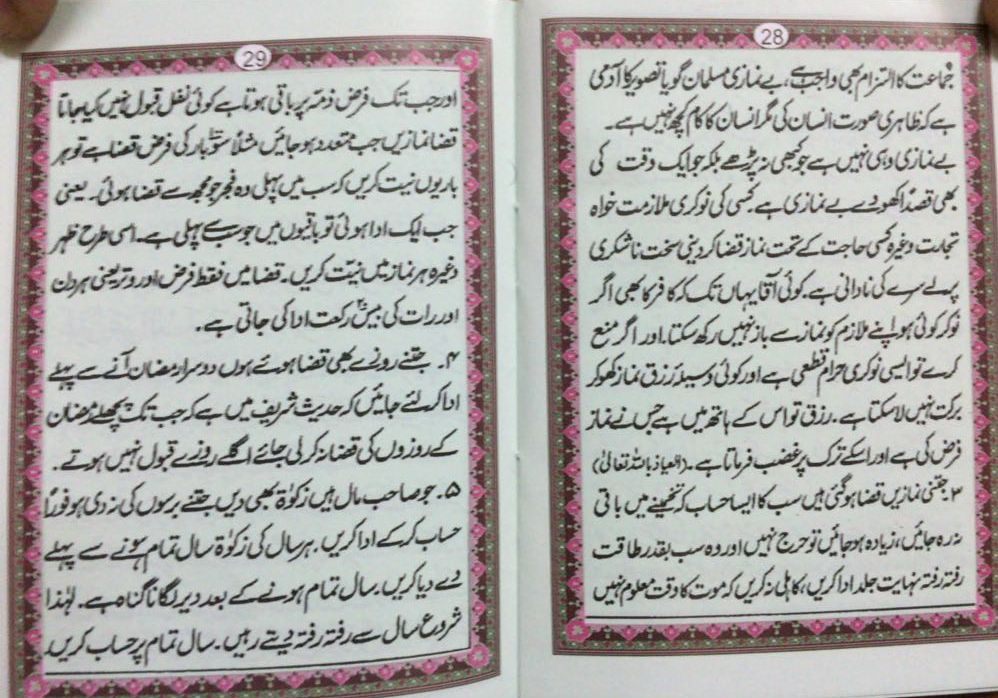 28
جماعت کا التزام بھی واجب ہے، بے نمازی مسلمان گویا تصویر کا آدمی
ہے کہ ظاہری صورت انسان کی مگر انسان کا کام کچھ نہیں ہے۔
بے نمازی وہی نہیں ہے جو کبھی نہ پڑھے بلکہ جو ایک وقت کی
بھی قصداً کھو دے بے نمازی ہے۔ کسی کی نوکری ملازمت خواہ
تجارت وغیرہ کسی حاجت کے تحت نماز قضا کر دینی سخت ناشکری
پرلے سرے کی نادانی ہے۔ کوئی آقا یہاں تک کہ کافر کا بھی اگر
نوکر کوئی ہو اپنے ملازم کو نماز سے باز نہیں رکھ سکتا۔ اور اگر منع
کرے تو ایسی نوکری حرام قطعی ہے اور کوئی وسیلۂ رزق نماز کھو کر
برکت نہیں لا سکتا ہے۔ رزق تو اس کے ہاتھ میں ہے جس نے نماز
فرض کی ہے اور اسکے ترک پر غضب فرماتا ہے۔ (العیاذ باللہ تعالیٰ)
۳۔ جتنی نمازیں قضا ہو گئی ہیں سب کا ایسا حساب کہ تخمینے میں باقی
نہ رہ جائیں، زیادہ ہو جائیں تو حرج نہیں اور وہ سب بقدر طاقت
رفتہ رفتہ نہایت جلد ادا کریں، کاہلی نہ کریں کہ موت کا وقت معلوم نہیں
29
اور جب تک فرض ذمہ پر باقی ہوتا ہے کوئی نفل قبول نہیں کیا جاتا
قضا نمازیں جب متعدد ہو جائیں مثلاً سو بار کی فرض قضا ہے تو ہر
بار یوں نیت کریں کہ سب میں پہلی وہ فجر جو مجھ سے قضا ہوئی۔ یعنی
جب ایک ادا ہوئی تو باقیوں میں جو سب سے پہلی ہے۔ اسی طرح ظہر
وغیرہ ہر نماز میں نیت کریں۔ قضا میں فقط فرض اور وتر یعنی ہر دن
اور رات کی بیس ۲۰ رکعت ادا کی جاتی ہے۔
۴۔ جتنے روزے بھی قضا ہوئے ہوں دوسرا رمضان آنے سے پہلے
ادا کر لئے جائیں کہ حدیث شریف میں ہے کہ جب تک پچھلے رمضان
کے روزوں کی قضا نہ کر لی جائے اگلے روزے قبول نہیں ہوتے۔
۵۔ جو صاحب مال ہیں زکوٰۃ بھی دیں جتنے برسوں کی نہ دی ہو فوراً
حساب کر کے ادا کریں۔ ہر سال کی زکوٰۃ سال تمام ہونے سے پہلے
دے دیا کریں۔ سال تمام ہونے کے بعد دیر لگانا گناہ ہے۔ لہٰذا
شروع سال سے رفتہ رفتہ دیتے رہیں۔ سال تمام پر حساب کریں